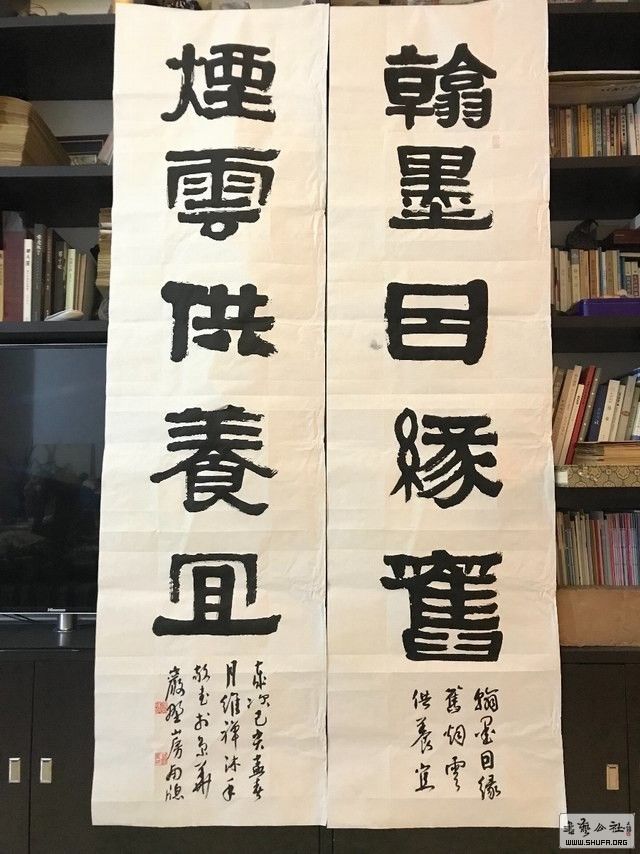 翰墨囙緣舊
翰墨囙緣
舊烟雲
供養宜
煙雲供養宜
歲次己亥孟春
月維禪沐手
敬書於京華
山房南窓
Hisense
書藝公社
WWW.SHUFA.ORG